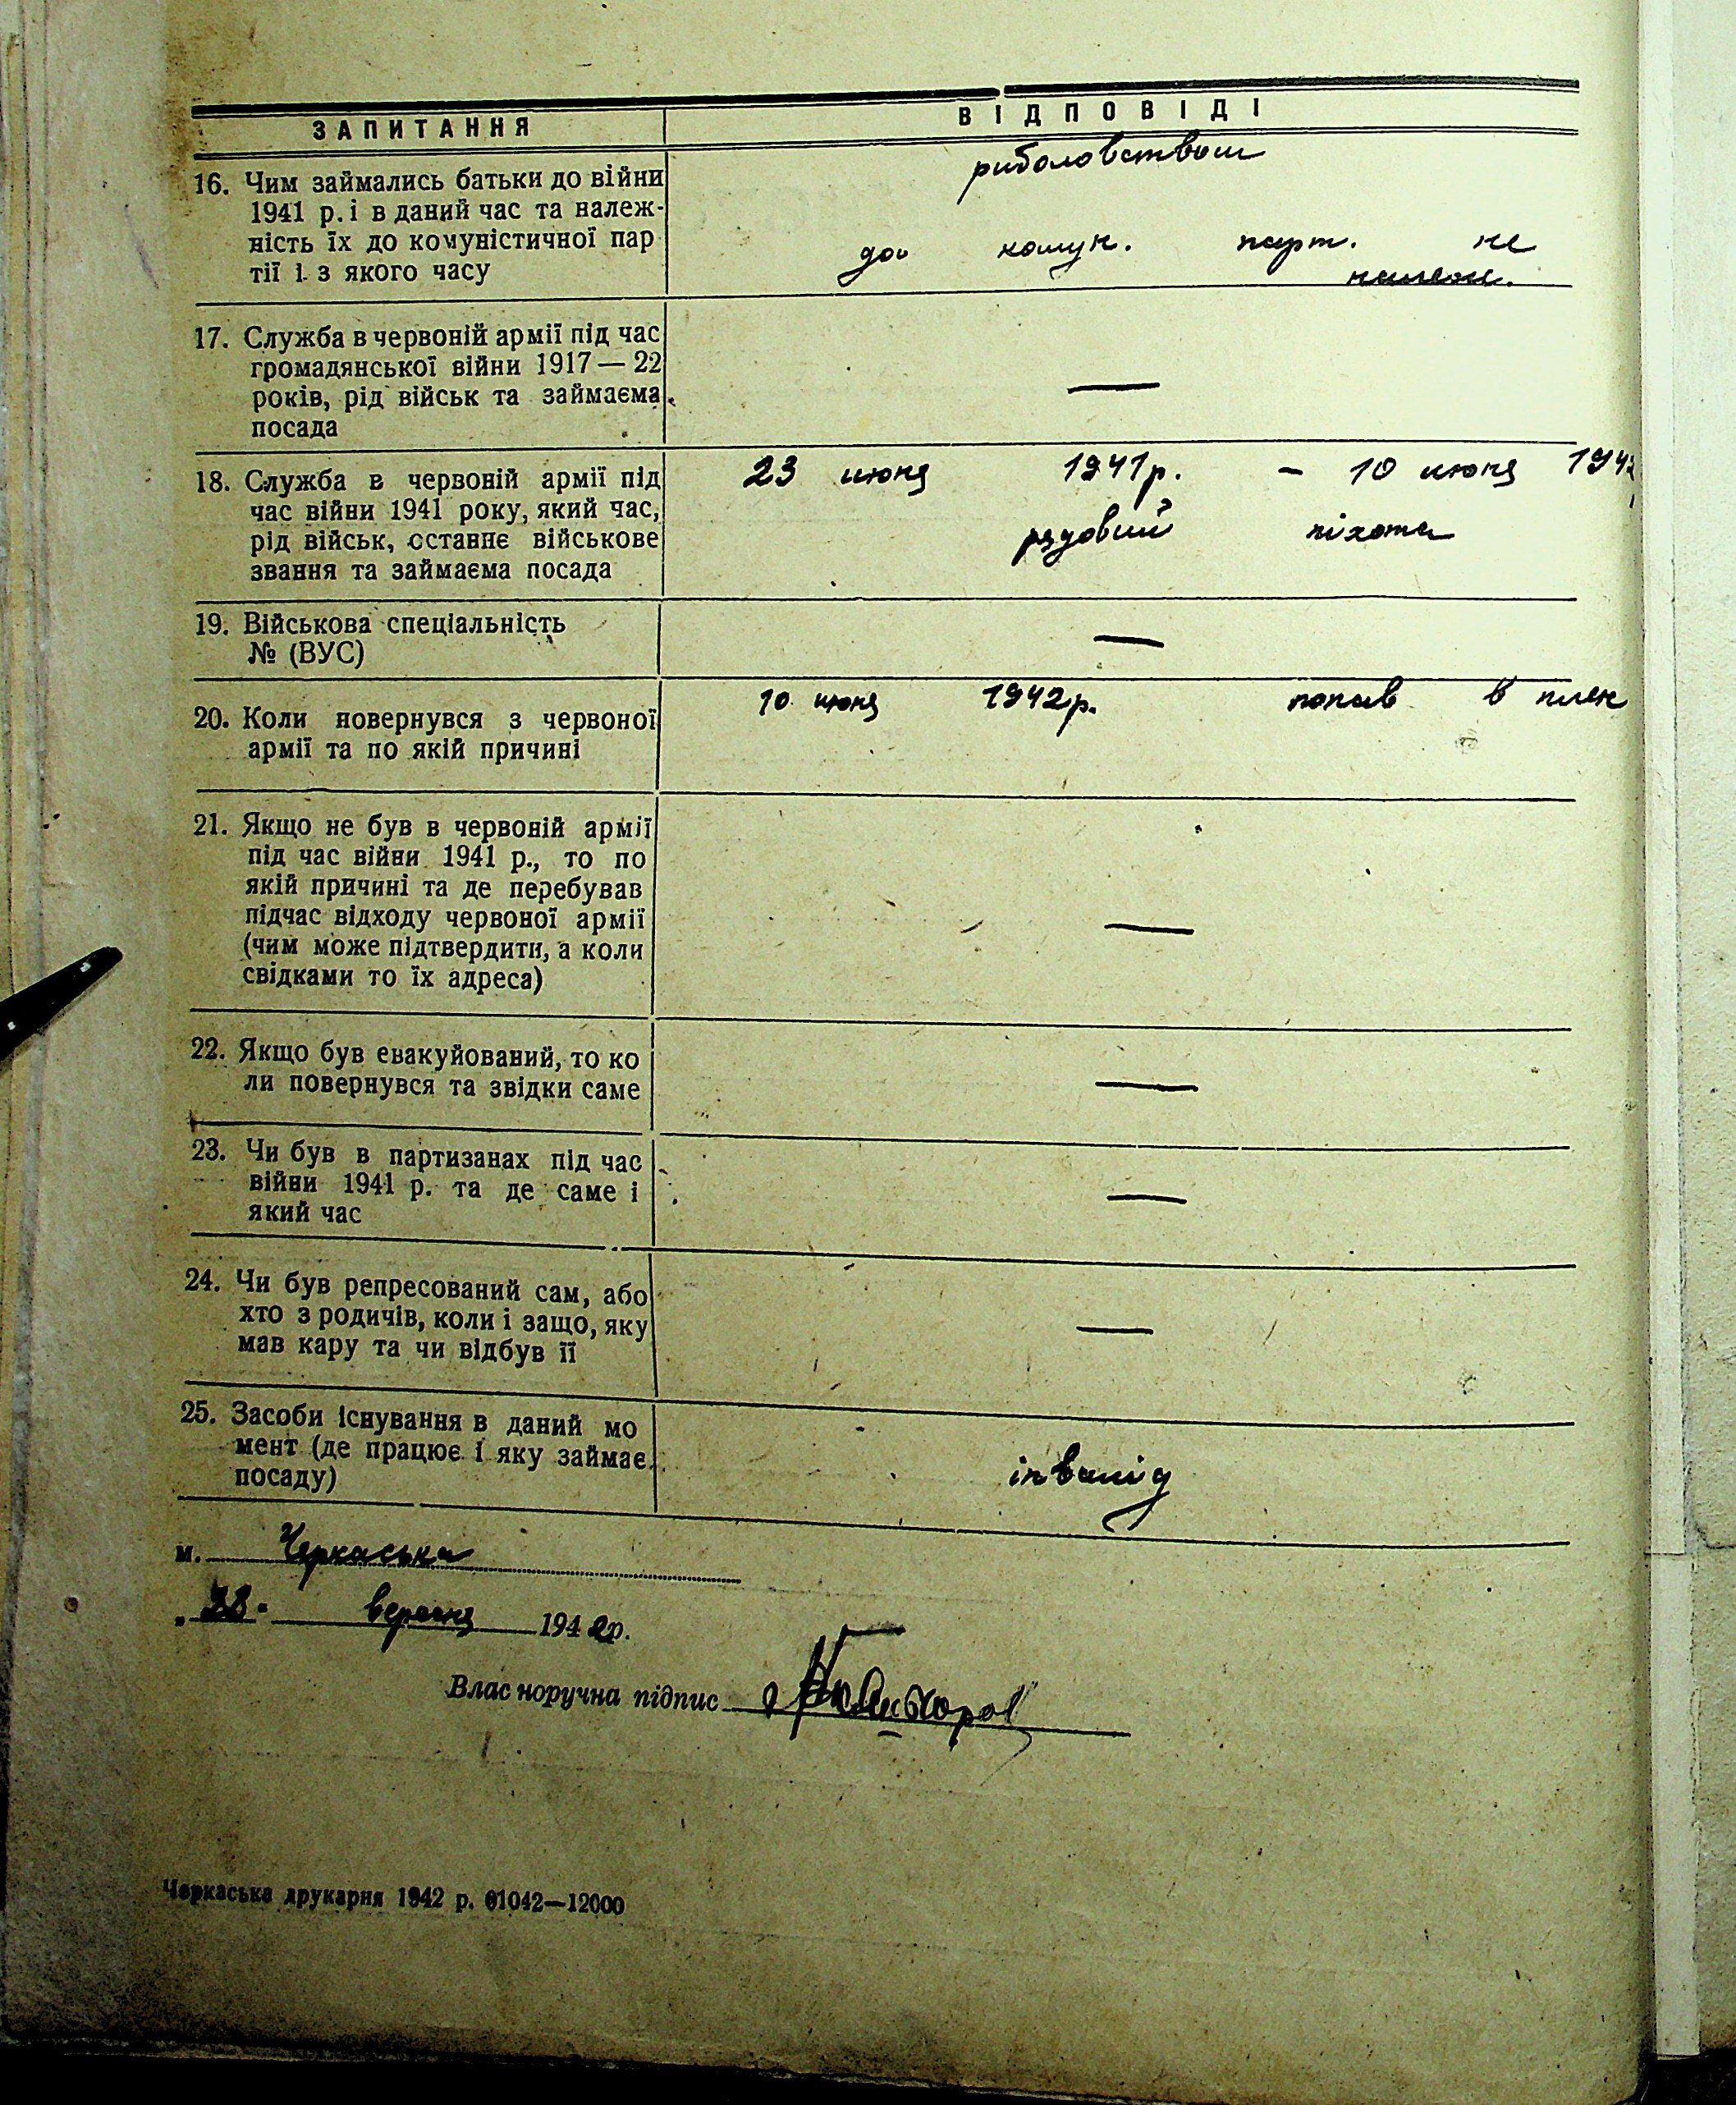 ЗАПИТАННЯ ВІДПОВІДІ
16. Чим займались батьки до війни
1941 р. і в даний час та належ-
ність їх до комуністичної пар
тії і з якого часу
риболовством
до комун. парт. не
належ.
17. Служба в червоній армії під час
громадянської війни 1917 — 22
років, рід військ та займаєма
посада
—
18. Служба в червоній армії під
час війни 1941 року, який час,
рід військ, останнє військове
звання та займаєма посада
23 июня 1941р. – 10 июня 1942
рядовий піхота
19. Військова спеціальність
№ (ВУС)
—
20. Коли повернувся з червоної
армії та по якій причині
10 июня 1942р. попав в плен
21. Якщо не був в червоній армії
під час війни 1941 р., то по
якій причині та де перебував
підчас відходу червоної армії
(чим може підтвердити, а коли
свідками то їх адреса)
—
22. Якщо був евакуйований, то ко
ли повернувся та звідки саме
—
23. Чи був в партизанах під час
війни 1941 р. та де саме і
який час
—
24. Чи був репресований сам, або
хто з родичів, коли і защо, яку
мав кару та чи відбув її
—
25. Засоби існування в даний мо
мент (де працює і яку займає
посаду)
інвалід
м. Черкаська
"28" вересня 1942р.
Власноручна підпис
Черкаська друкарня 1942 р. 01042—12000